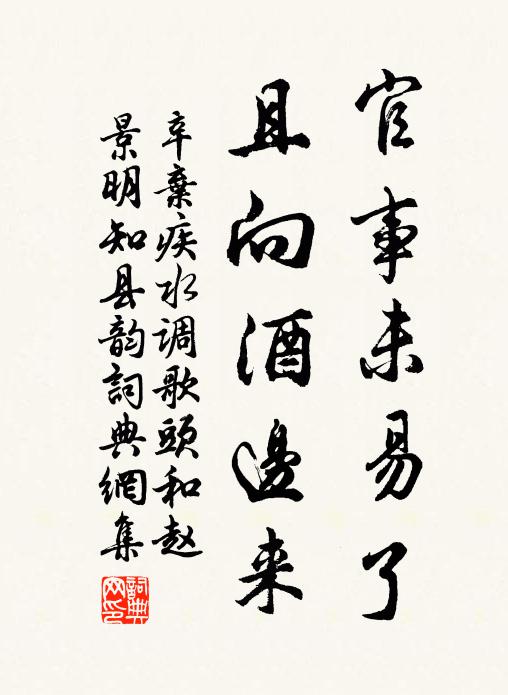 官事未易了
且向酒邊来
辛棄疾水调歌頭和赵
景明知县韵詞典網集
詞典網印